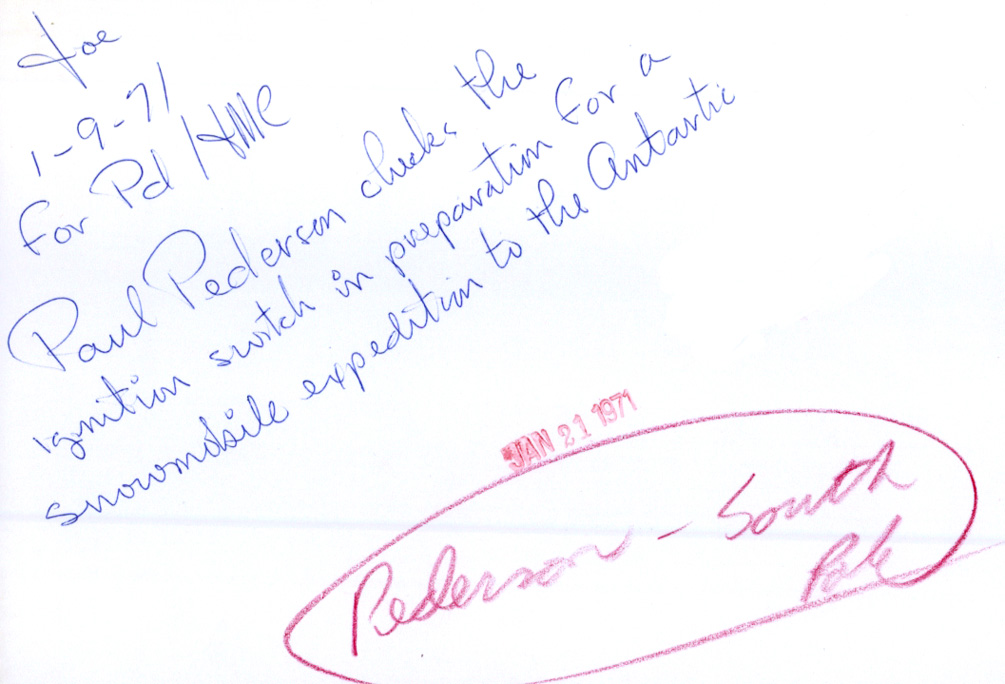 Joe
1-9-71
For Pd/HME
Paul Pederson checks the
ignition switch in preparation for a
snowmobile expedition to the Antartic
JAN 21 1971
Pederson - South
Pole